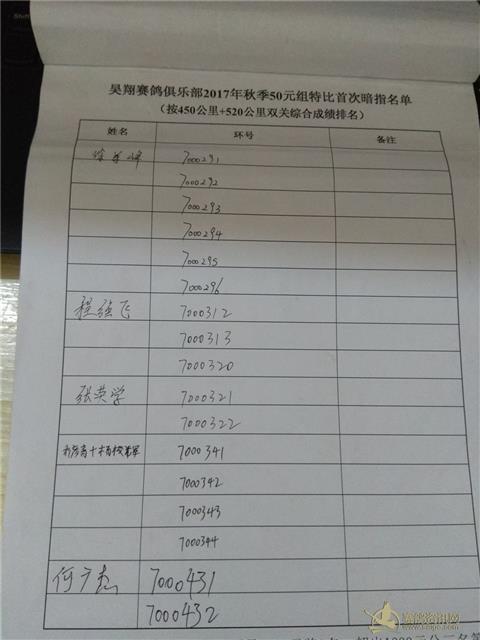 昊翔赛鸽俱乐部2017年秋季50元组特比首次暗指名单
（按450公里+520公里双关综合成绩排名）
姓名 环号 备注
7000291
7000292
7000293
7000294
7000295
7000296
程强飞 7000312
7000313
7000320
张英学 7000321
7000322
7000341
7000342
7000343
7000344
何广杰 7000431
7000432